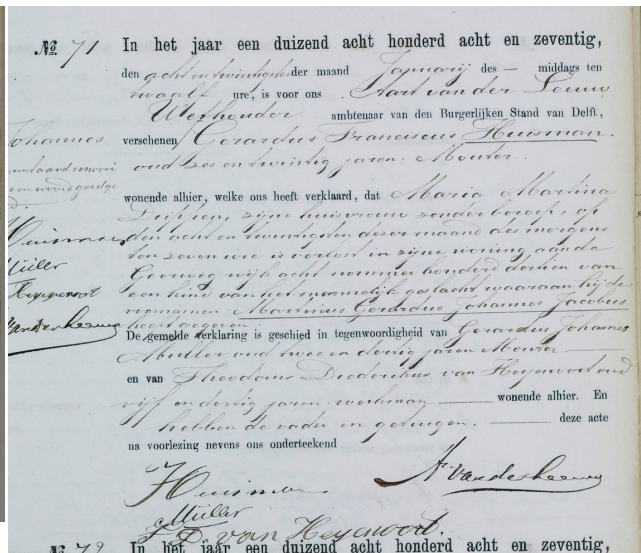 No. 71
In het jaar een duizend acht honderd acht en zeventig,
den acht en twintigsten der maand Januarij des — middags ten
twaalf ure, is voor ons Aart van der Leeuw
Wethouder ambtenaar van den Burgerlijken Stand van Delft,
verschenen Gerardus Franciscus Huisman.
oud zes en twintig jaren. Mouter.
wonende alhier, welke ons heeft verklaard, dat Maria Martina
zijne huisvrouw zonder beroep, op
den acht en twintigsten dezer maand des morgens
ten zeven ure is verlost in zijne woning aan de
Geerweg wijk acht nommer honderd dertien van
een kind van het mannelijk geslacht waaraan hij de
voornamen Marinus Gerardus Johannes Jacobus
heeft gegeven
De gemelde verklaring is geschied in tegenwoordigheid van Gerardus Johannes
Muller oud twee en dertig jaren Mouter
en van Theodorus Diederikus van Heynoort oud
vijf en dertig jaren werkman — wonende alhier. En
hebben de vader en getuigen. — deze acte
na voorlezing nevens ons onderteekend
Huisman
A. van der Leeuw
Müller
van Heynoort.
Johannes
Huisman
Müller
Heynoort
van der Leeuw
No. 72
In het jaar een duizend acht honderd acht en zeventig,